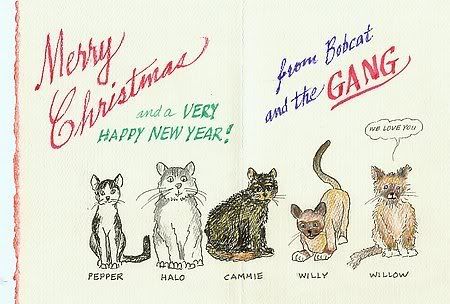 Merry
Christmas
and a VERY
HAPPY NEW YEAR!
from Bobcat
and the GANG
WE LOVE YOU
PEPPER HALO CAMMIE WILLY WILLOW